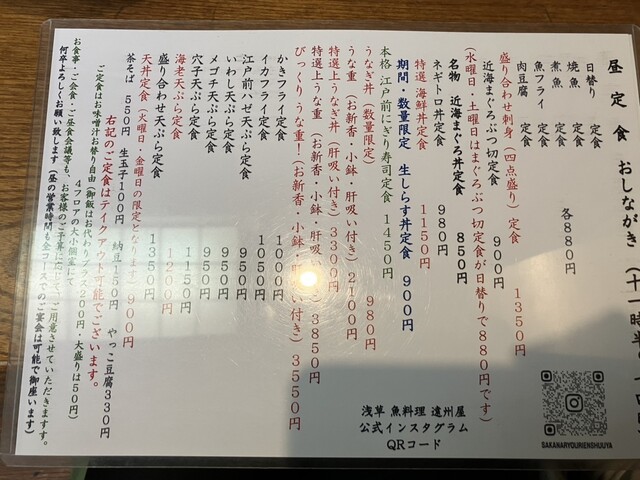 昼 定 食 おしながき
日替り 定食
焼魚 定食
煮魚 定食
魚フライ 定食
肉豆腐 定食
各880円
盛り合わせ刺身(四点盛り)定食 1350円
近海まぐろぶつ切定食 900円
(水曜日・土曜日はまぐろぶつ切定食が日替りで880円です)
名物 近海まぐろ丼定食 850円
ネギトロ丼定食 980円
特選 海鮮丼定食 1150円
期間・数量限定 生しらす丼定食 900円
本格 江戸前にぎり寿司定食 1450円
うなぎ丼(数量限定) 980円
うな重(お新香・小鉢・肝吸い付き)2100円
特選上うなぎ丼(肝吸い付き)3300円
特選上うな重(お新香・小鉢・肝吸い付き)3850円
びっくり うな重!(お新香・小鉢・肝吸い付き)3550円
かきフライ定食 1000円
イカフライ定食 1050円
江戸前ハゼ天ぷら定食 950円
いわし天ぷら定食 950円
メゴチ天ぷら定食 950円
穴子天ぷら定食
海老天ぷら定食 1200円
盛り合わせ天ぷら定食 1350円
天丼定食(火曜日・金曜日の限定となります)900円
茶そば 550円 生玉子100円 納豆150円 やっこ豆腐330円
右記のご定食はテイクアウト可能でございます。
ご定食はお味噌汁お替り自由(御飯はお代わりプラス200円・大盛りは50円)
4フロアの大小個室
お食事・ご会食・ご会食会議等も、お客様のご予算に応じてご用意させていただきます。
何卒よろしくお願い致します(昼の営業時間も全コースでのご宴会は可能で御座います)
浅草 魚料理 遠州屋
公式インスタグラム
QRコード
SAKANARYOURIENSHUUYA